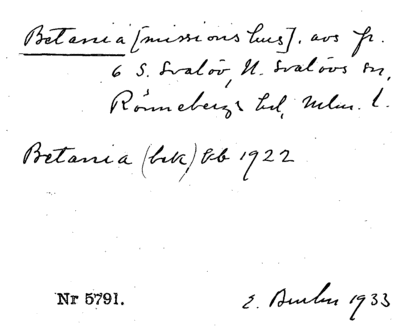 Betania [missionshus], avs fr.
6 S. Svalöv, N. Svalövs sn,
Rönnebergs hd, Mlm. l.
Betania (bek) Eb 1922
Nr 5791.
1933